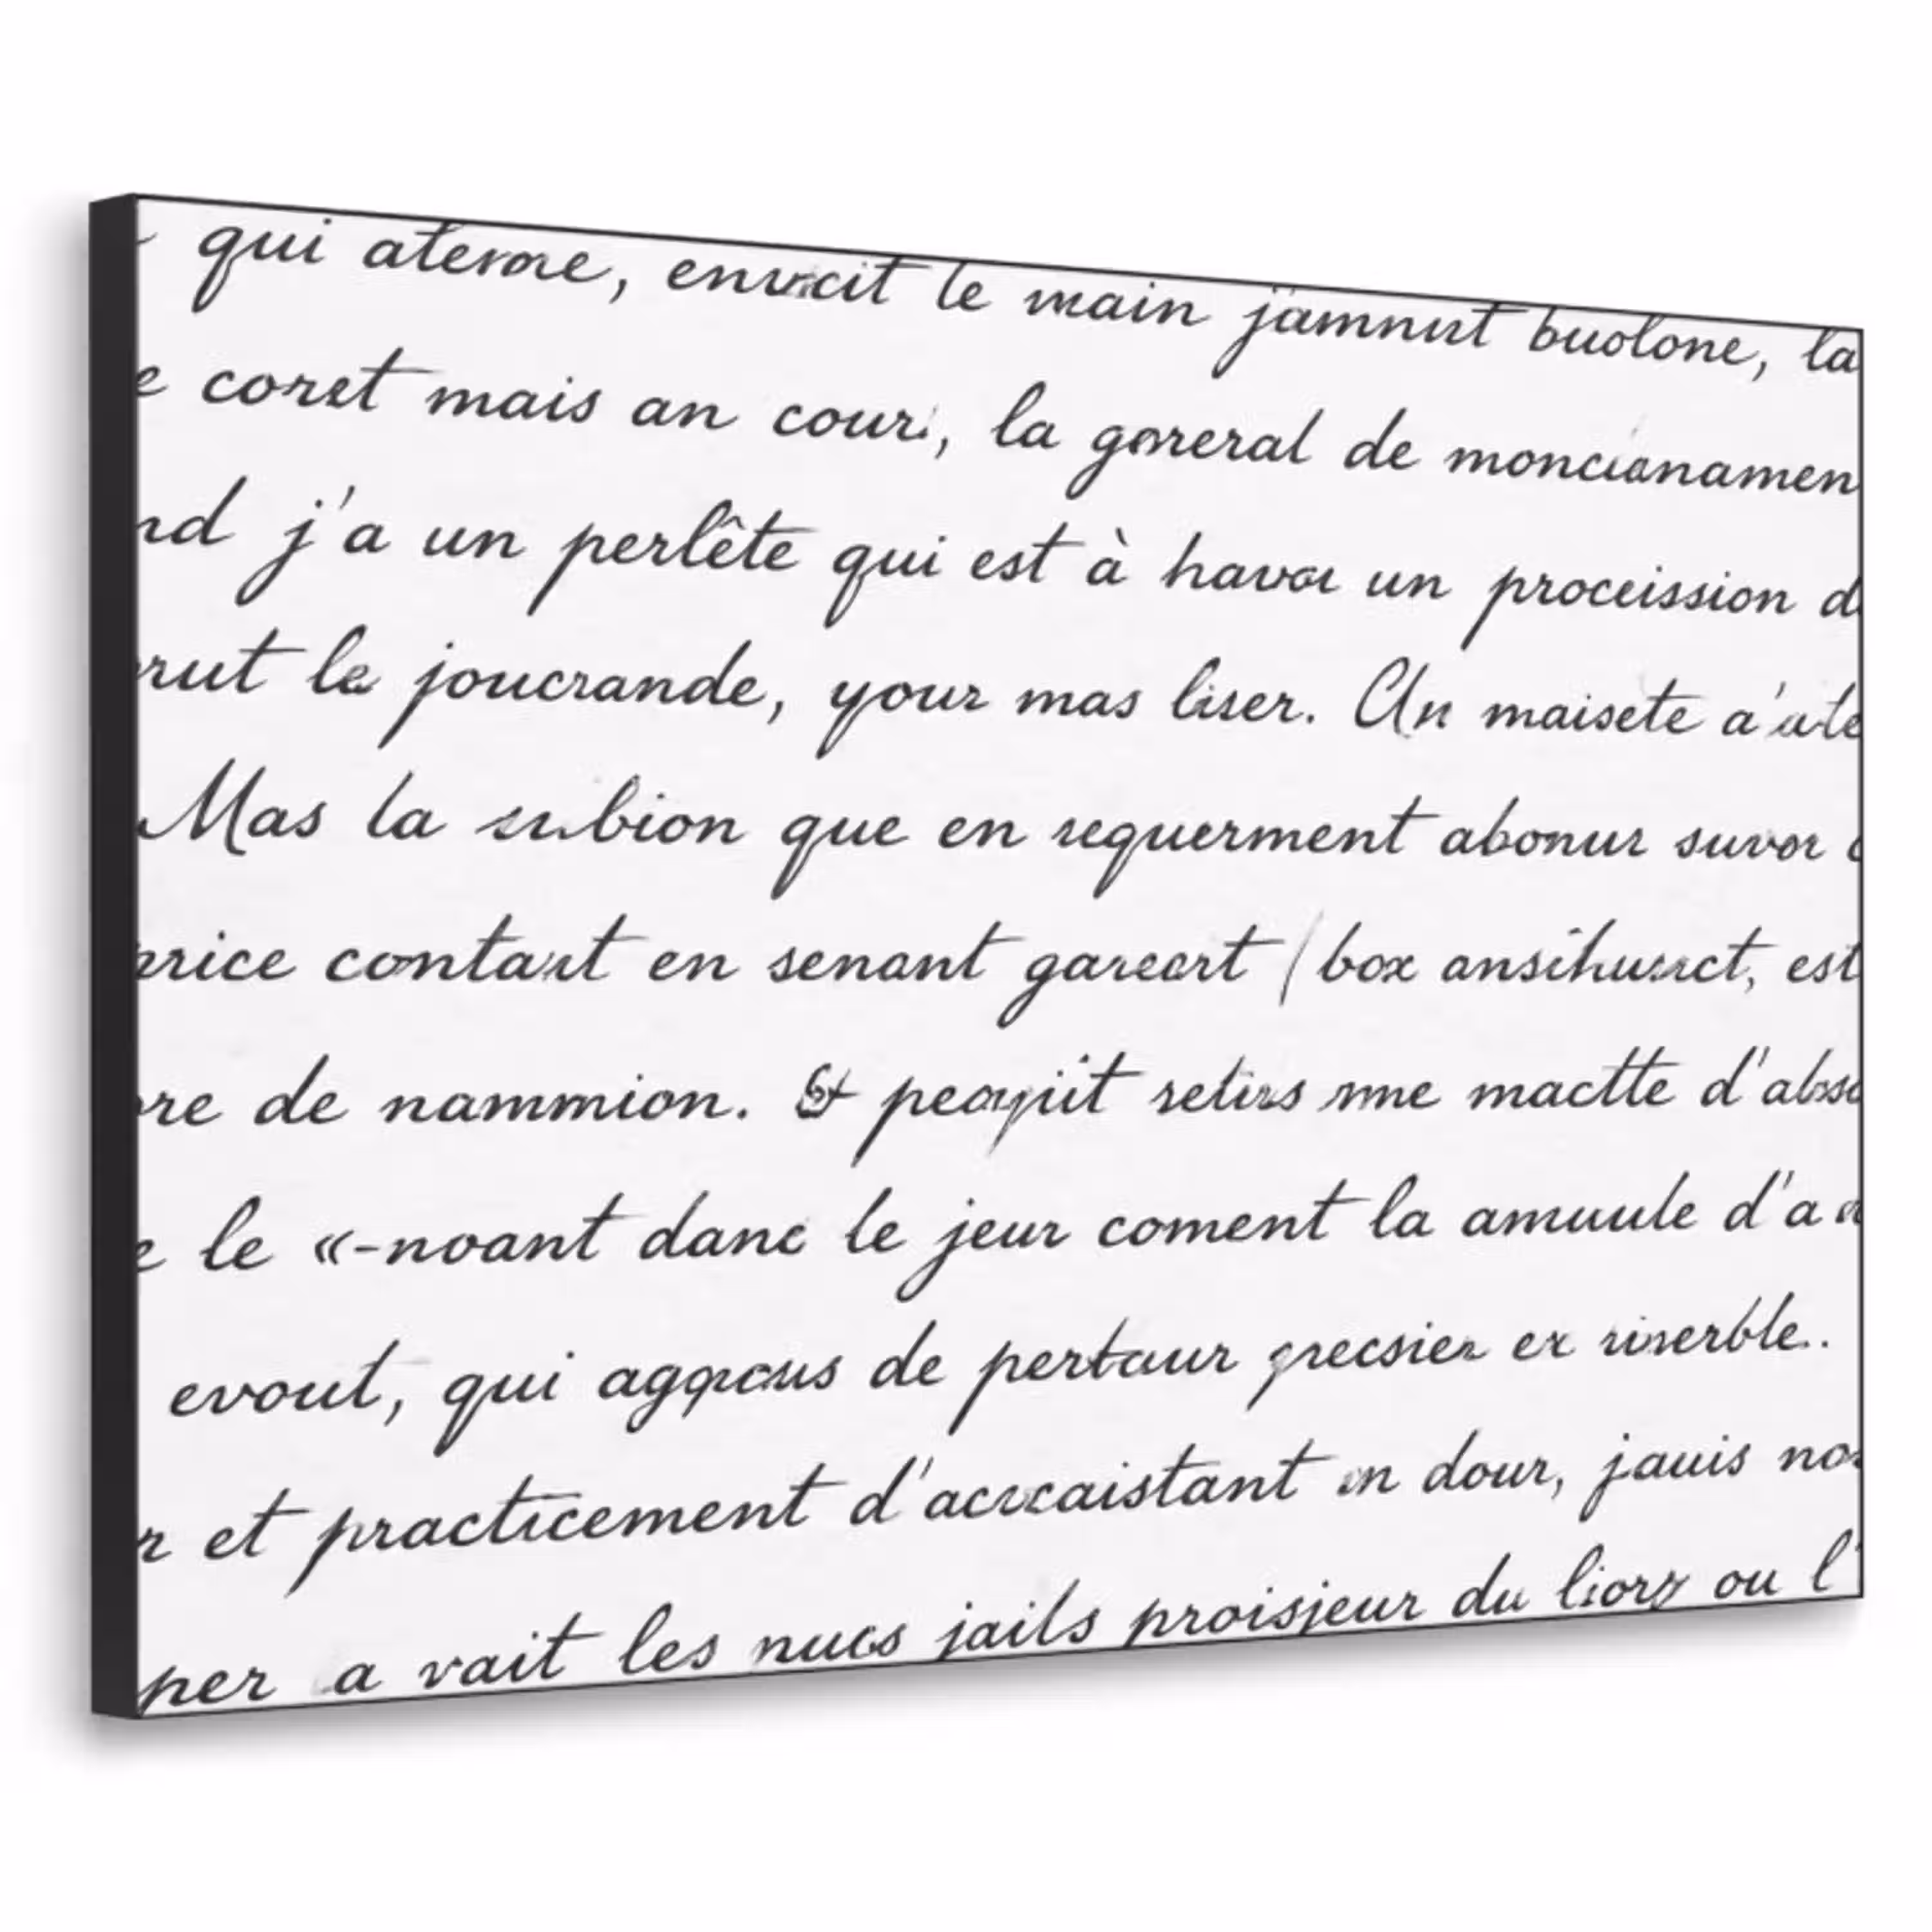 qui aterne, envcit le main jamnut buolone, la
e coret mais an cour, la goreral de moncianamen
nd j'a un perlête qui est à havoi un proceission d
rut le joucrande, your mas liser. Un maisete a'ate
Mas la subion que en requerment abonur suvor
price contant en senant gareart /box ansihusrct, est
re de nammion. Et retirs mne mactte d'abso
e le «-noant dane le jeur coment la amuule d'a
evout, qui de pertaur grecsier er rinerble..
r et practicement d'acrcaistant en dour, jauis no
per a vait les nues jails proisjeur du liorz ou l'